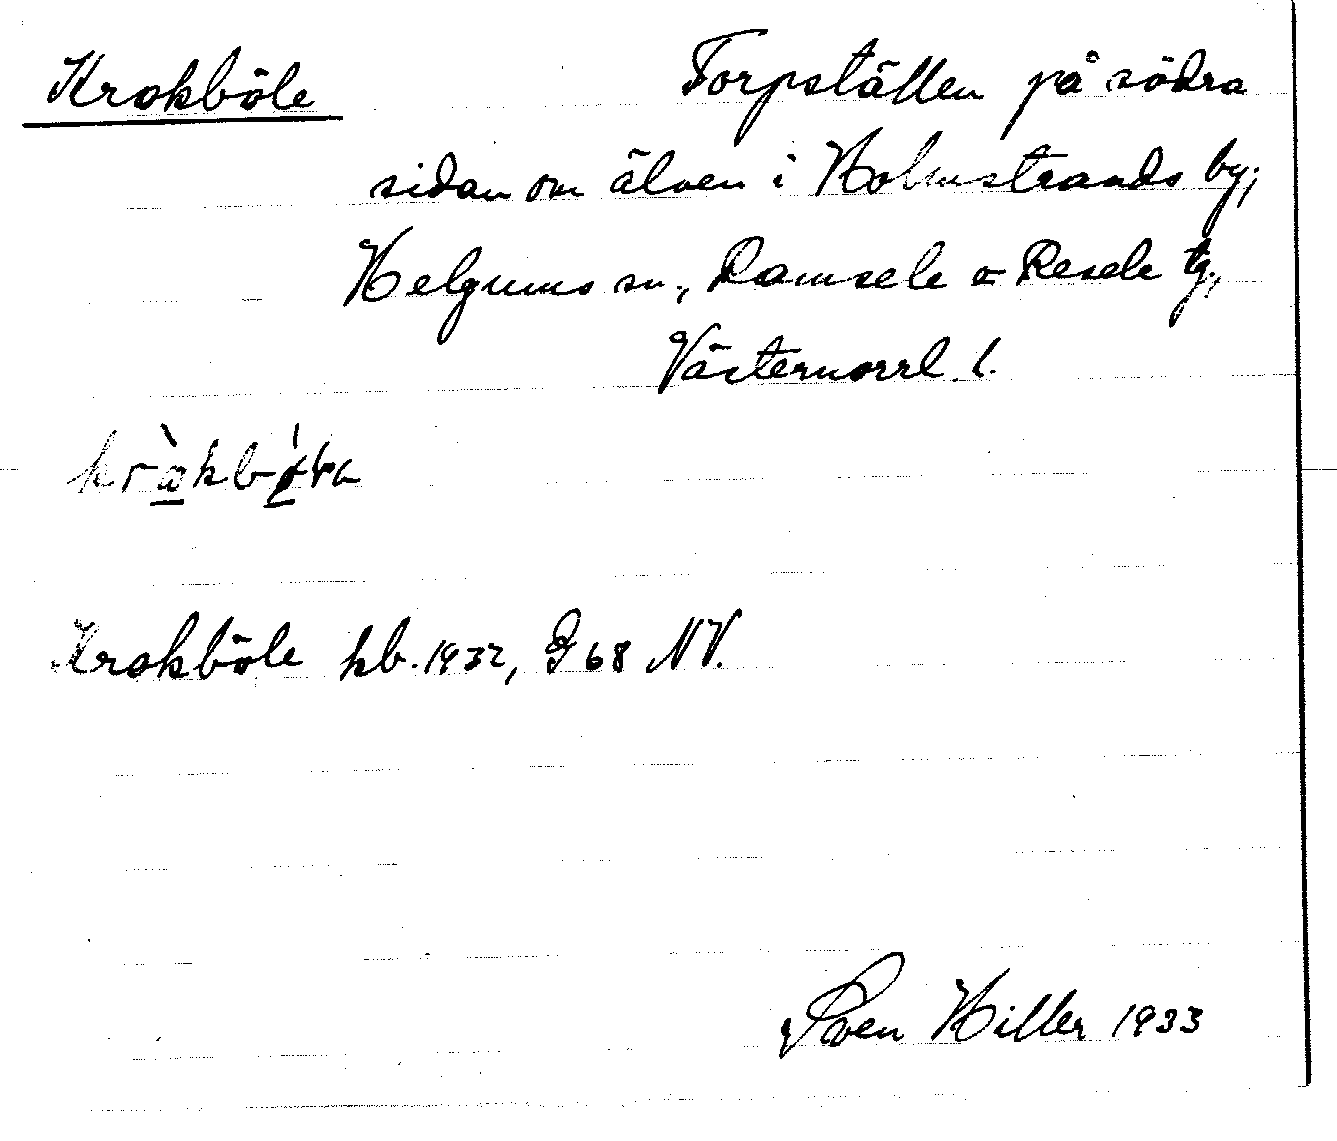 Krokböle Torpställen på södra
sidan om älven i Holmstrands by;
Helgums sn, Ramsele o Resele tg.,
Västernorrl. l.
Krokböle kb. 1932, G 68 NV.
Sven Hiller 1933